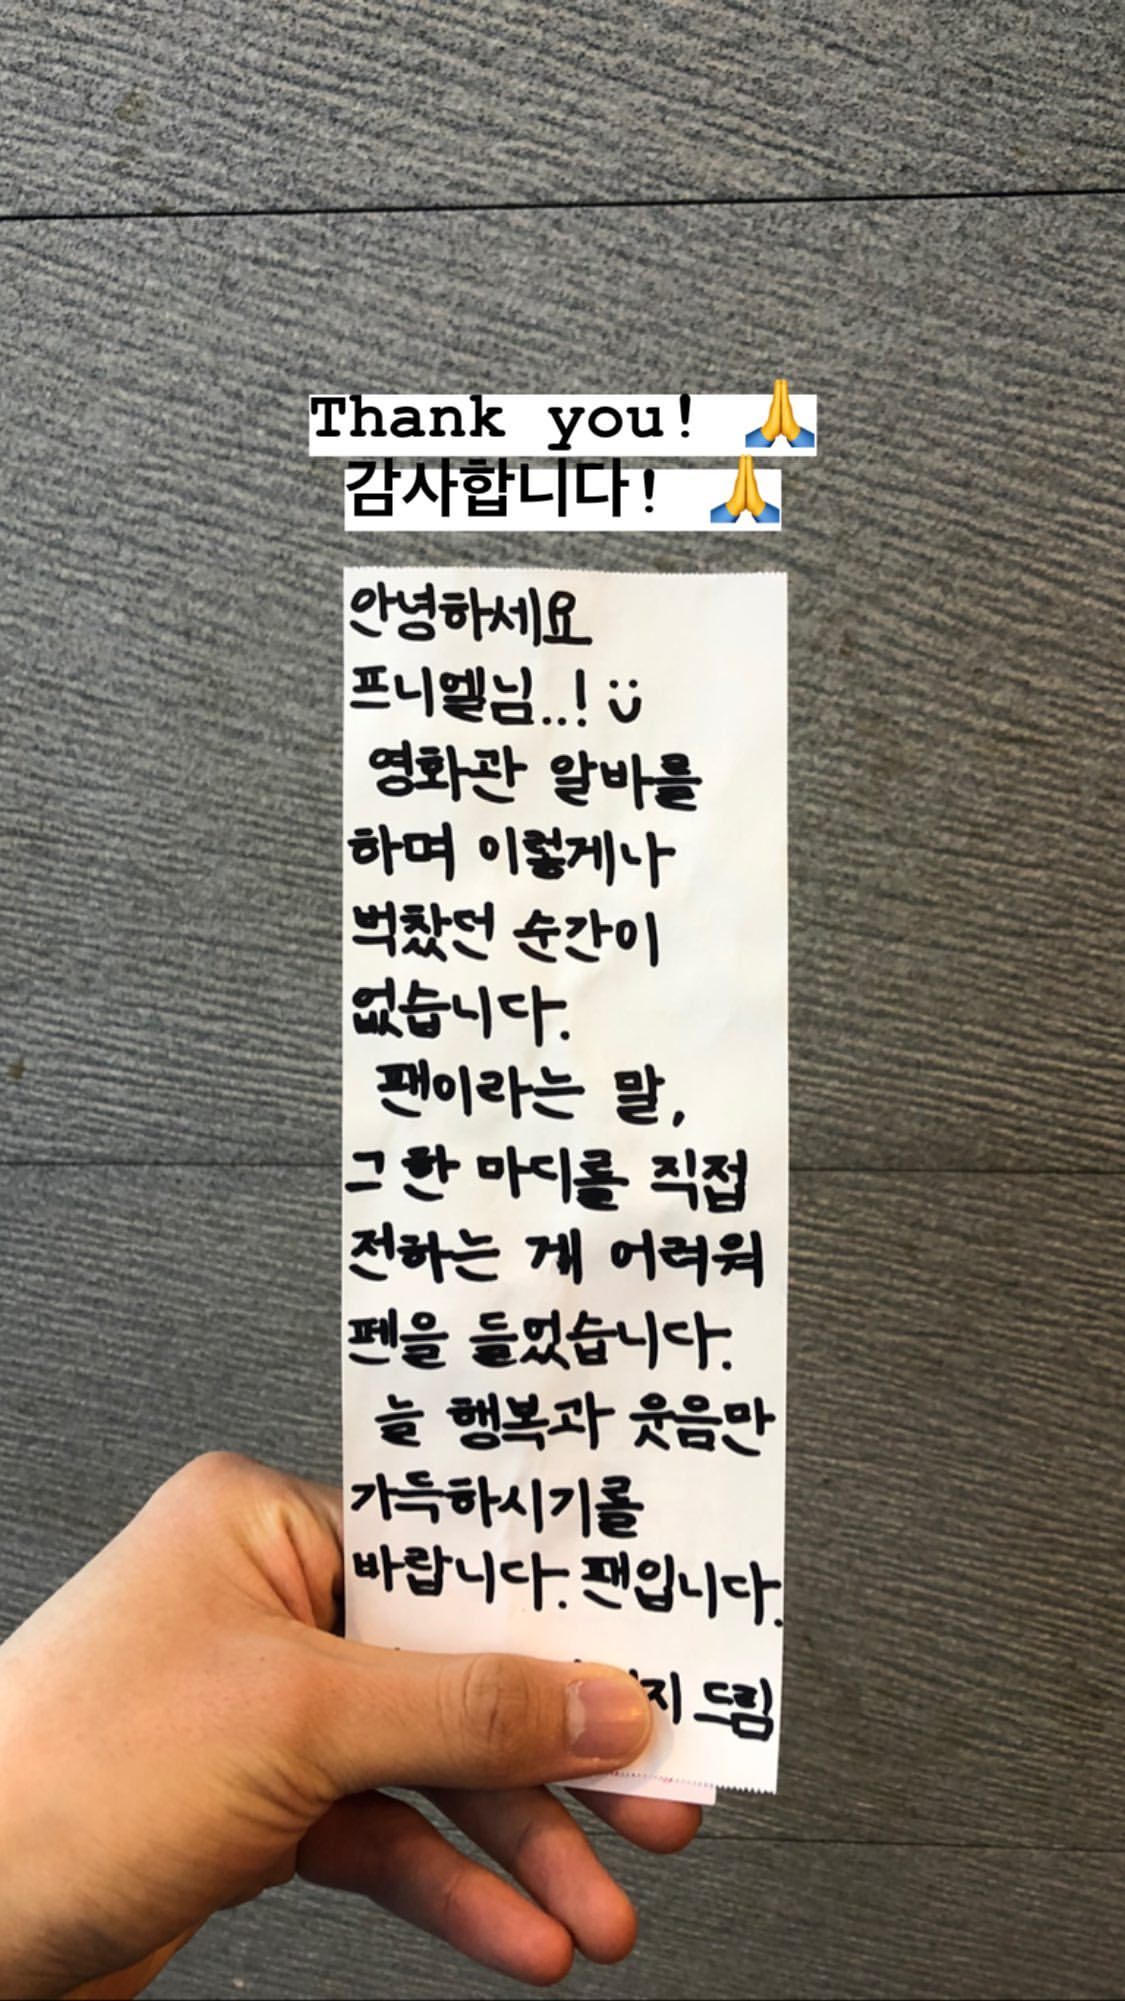 Thank you! 🙏
감사합니다! 🙏
안녕하세요
프니엘님..! :)
영화관 알바를
하며 이렇게나
벅찼던 순간이
없습니다.
팬이라는 말,
그 한 마디를 직접
전하는 게 어려워
펜을 들었습니다.
늘 행복과 웃음만
가득하시기를
바랍니다. 팬입니다.
드림